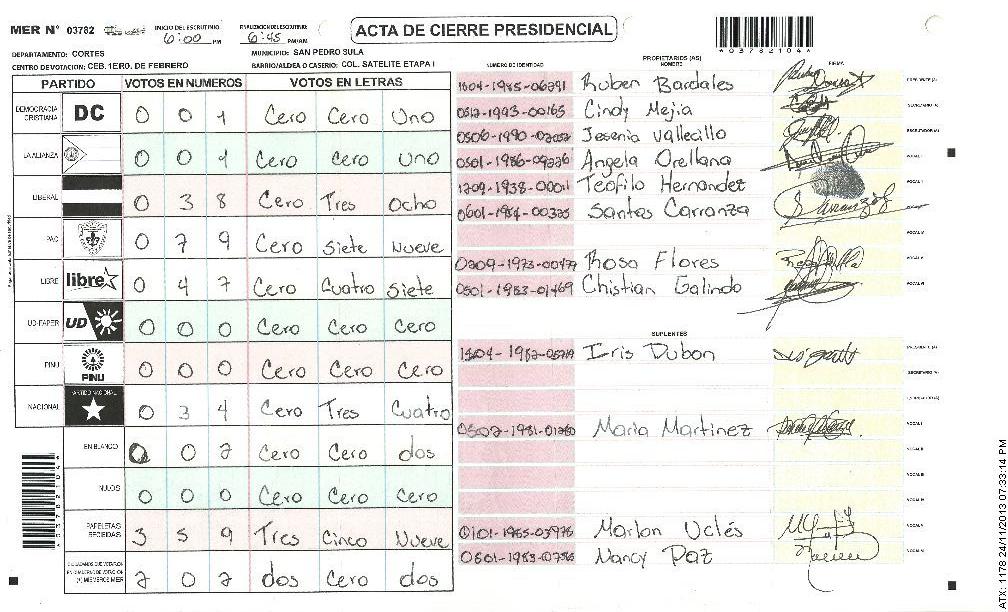 MER N° 03782
INICIO DEL ESCRUTINIO 6:00 PM
FINALIZACION DEL ESCRUTINIO: 6:45 PM/AM
ACTA DE CIERRE PRESIDENCIAL
*03782104*
DEPARTAMENTO: CORTES MUNICIPIO: SAN PEDRO SULA
CENTRO DEVOTACION: CEB. 1ERO. DE FEBRERO BARRIO/ALDEA O CASERIO: COL. SATELITE ETAPA I
PARTIDO VOTOS EN NUMEROS VOTOS EN LETRAS
DEMOCRACIA CRISTIANA DC 0 0 1 Cero Cero Uno
LA ALIANZA 0 0 1 Cero Cero Uno
LIBERAL 0 3 8 Cero Tres Ocho
PAC 0 7 9 Cero Siete Nueve
LIBRE libre 0 4 7 Cero Cuatro Siete
UD-FAPER UD 0 0 0 Cero Cero Cero
PINU PINU 0 0 0 Cero Cero Cero
NACIONAL PARTIDO NACIONAL 0 3 4 Cero Tres Cuatro
EN BLANCO 0 0 2 Cero Cero dos
NULOS 0 0 0 Cero Cero Cero
PAPELETAS RECIBIDAS 3 5 9 Tres Cinco Nueve
2 0 2 dos Cero dos
NUMERO DE IDENTIDAD PROPIETARIOS (AS) NOMBRE FIRMA
Ruben Bardales PRESIDENTE (A)
0512-1993-00165 Cindy Mejia SECRETARIO (A)
Jesenia Vallecillo ESCRUTADOR (A)
Angela Orellana VOCAL I
1209-1938-00011 Teofilo Hernandez VOCAL II
Santos Carranza
VOCAL IV
0209-1973-00479 Rosa Flores VOCAL V
0501-1983-01469 Chistian Galindo VOCAL VI
SUPLENTES
Iris Dubon PRESIDENTE (A)
SECRETARIO (A)
Maria Martinez VOCAL I
VOCAL II
VOCAL III
VOCAL IV
Marlon Uclés VOCAL V
Nancy Paz VOCAL VI
ATX: 1178 24/11/2013 07:33:14 PM